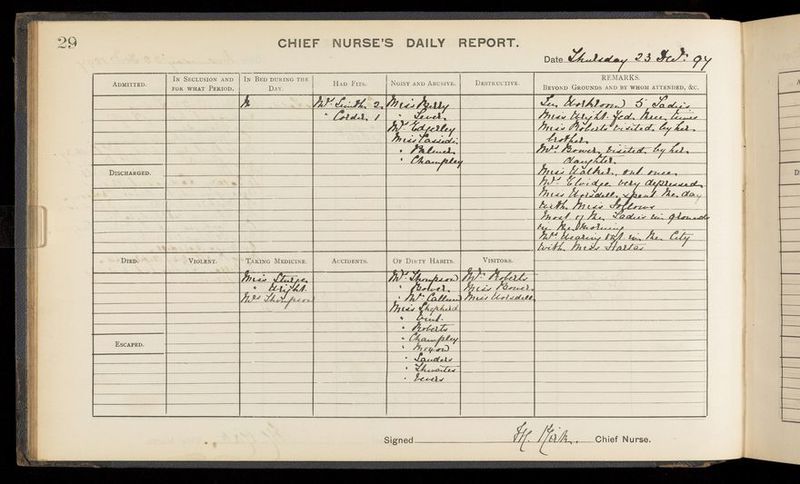 29
CHIEF NURSE'S DAILY REPORT.
Date Thursday 23 Decr. 97
ADMITTED.
IN SECLUSION AND FOR WHAT PERIOD.
IN BED DURING THE DAY.
HAD FITS.
NOISY AND ABUSIVE.
DESTRUCTIVE.
REMARKS.
BEYOND GROUNDS AND BY WHOM ATTENDED, &C.
Mrs Smith 2
" 1
Miss
"
Mrs Edgerley
Miss
" Palmer
" Champley
In Workroom 5 Ladies
Miss Wright fed three times
Miss Roberts visited by her
brother
Mrs Bower visited by her
daughter
Miss Walker out once
Mrs Elvidge very depressed
Miss Worsdell spent the day
with Miss
Most of the Ladies in grounds
in the Morning
Mrs out in the City
with Miss
DISCHARGED.
DIED.
VIOLENT.
TAKING MEDICINE.
ACCIDENTS.
OF DIRTY HABITS.
VISITORS.
Miss Sturges
" Wright
Mrs Thompson
Mrs Thompson
" Bower
" McCallum
Miss Shepherd
"
" Roberts
" Champley
" Moxon
" Sanders
" Thwaites
" Vevers
Mr Roberts
Miss Bower
Miss Worsdell
ESCAPED.
Signed H. Kirk. Chief Nurse.